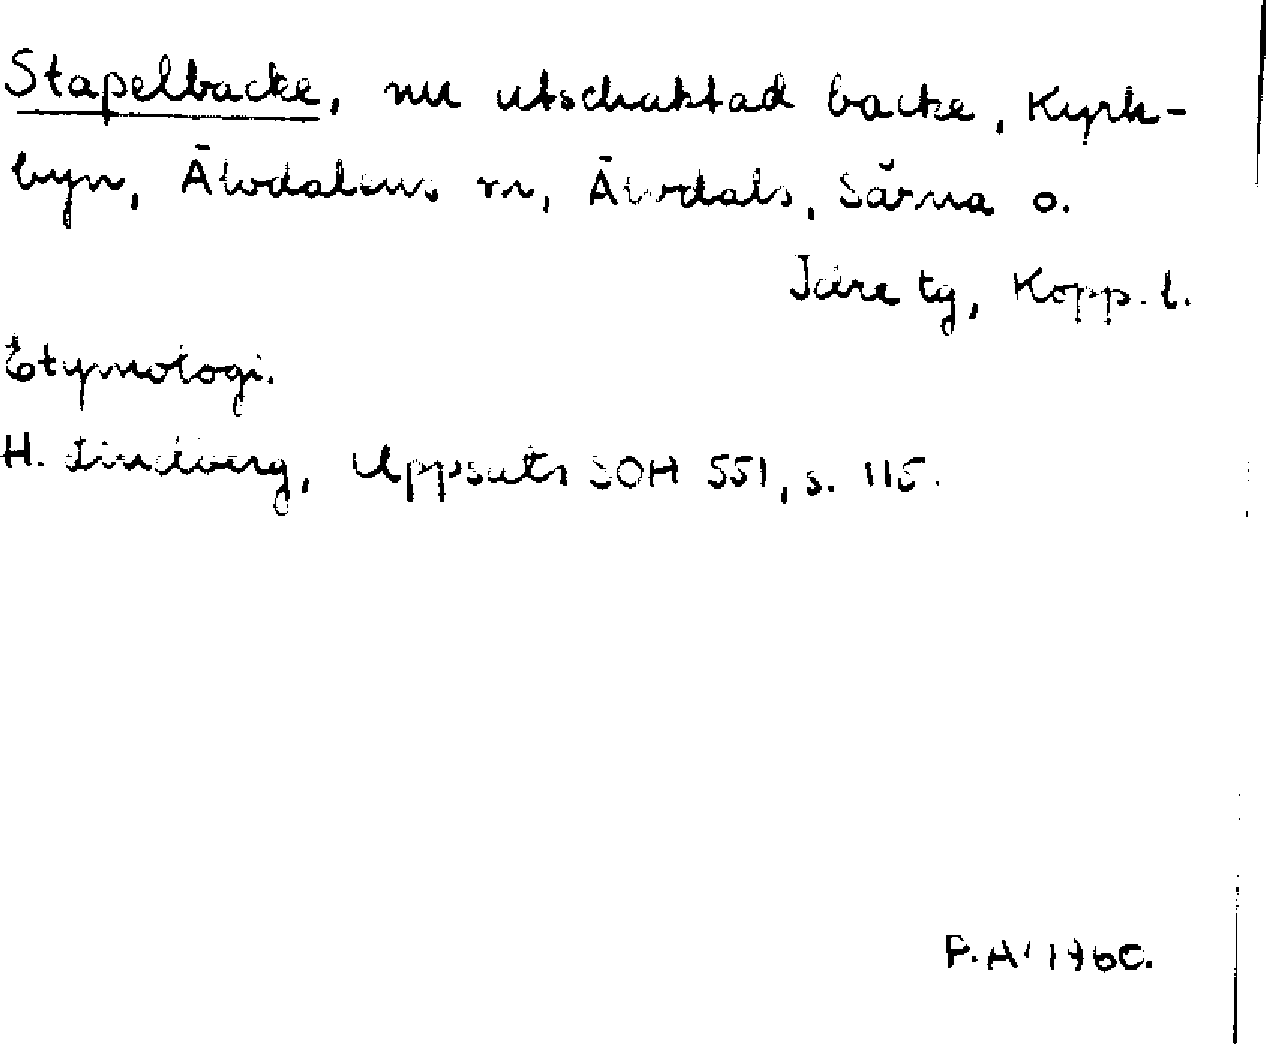 Stapelbacke, nu utschaktad backe, Kyrk-
byn, Älvdalens sn, Älvdals, Särna o.
Idre tg, Kopp. l.
Etymologi.
H. Lindberg, Uppsats SOH 551, s. 115.
P.A. 1960.